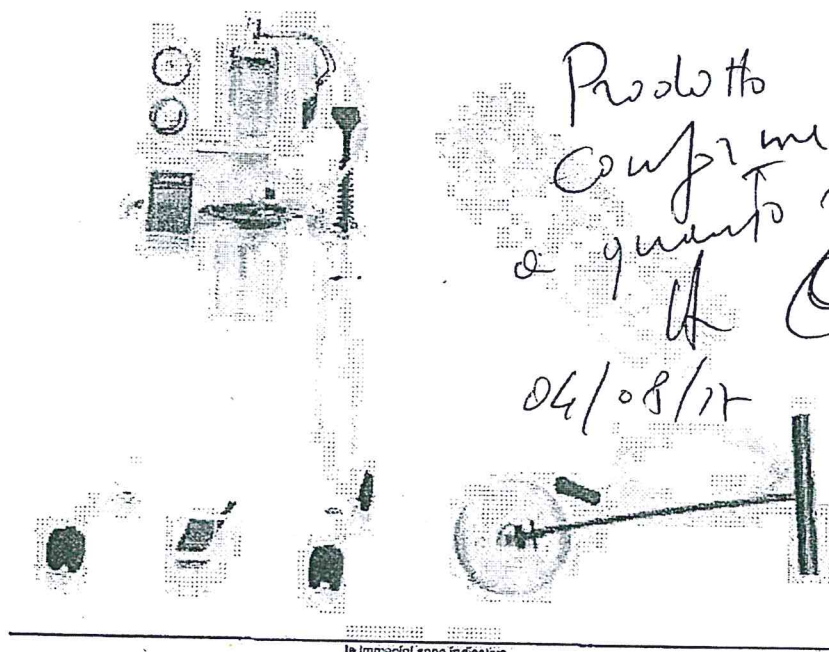 Prodotto
Conforme
a quanto
04/08/17
le immagini sono indicative